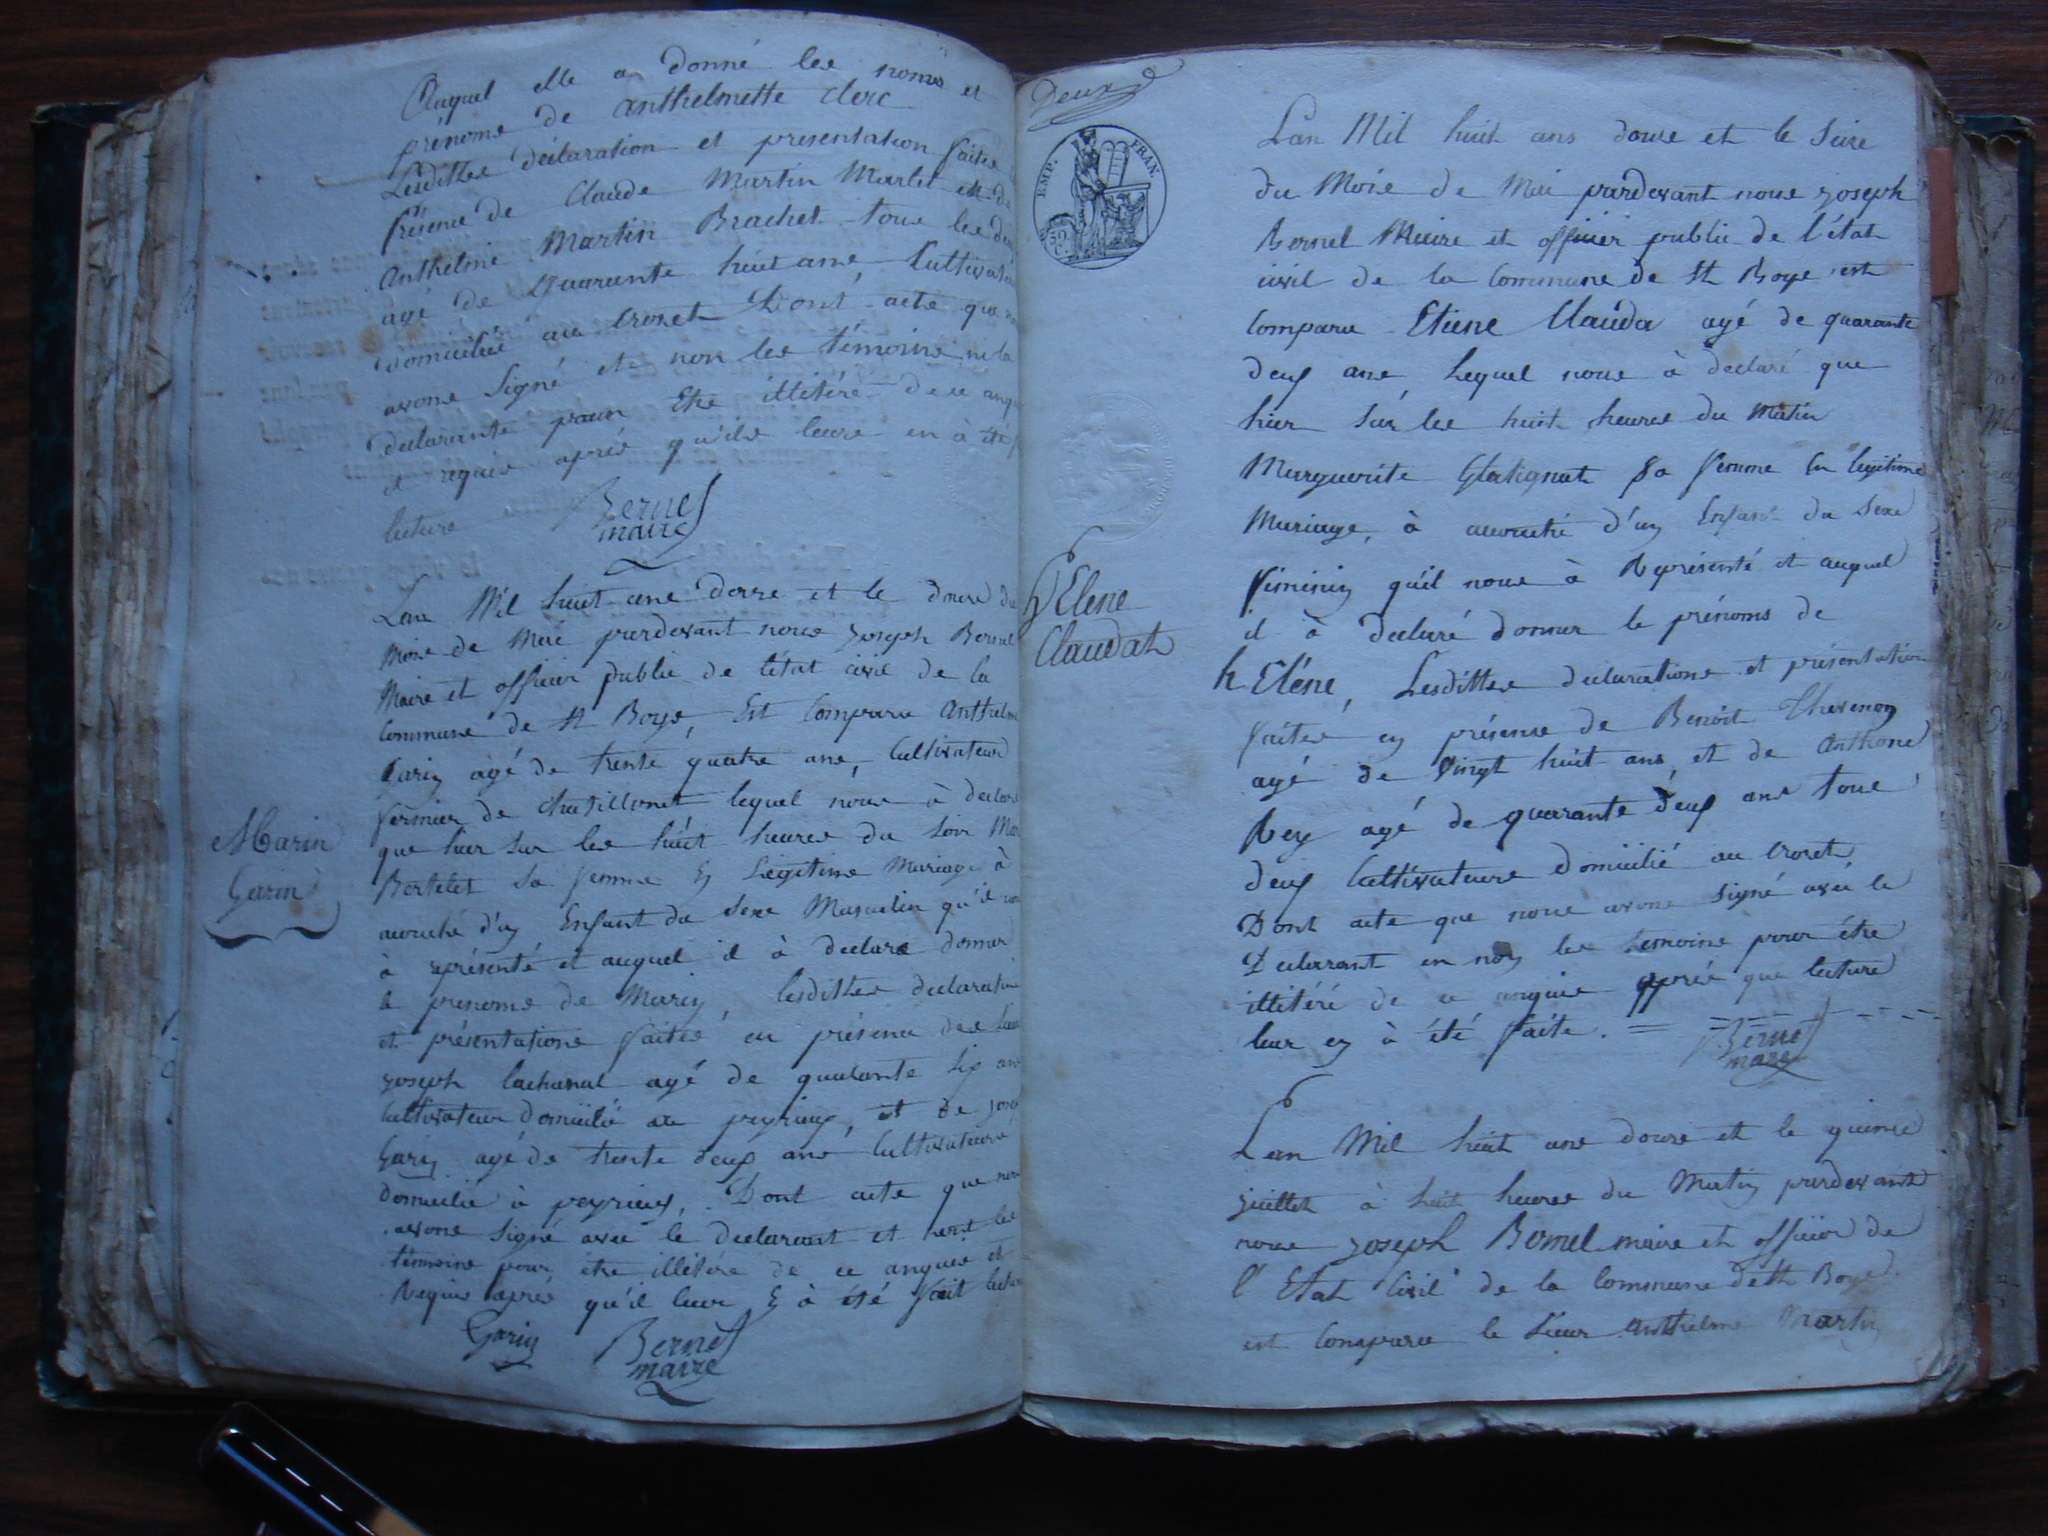 Auquel elle a donné les noms et
prénoms de anthelmette Clerc
Lesdittes déclaration et presentation faites
présence de Claude Martin Marlet et de
Anthelme Martin Brachet tous les deux
agé de quarante huit ans, Cultivateur
domicilié au Croset Dont acte que
avons signé et non les témoins ni la
declarante pour Etre illitéré de ce
requis après qu'ils leurs en à été
lecture
Bernel
maire
Lan Mil huit cens douze et le douze du
Mois de Mai pardevant nous Joseph Bernel
Maire et officier public de l'état civil de la
Commune de St Boys, Est Comparu Anthelme
Garin agé de trente quatre ans, Cultivateur
fermier de Chatillonet lequel nous à declaré
que hier sur les huit heures du soir
Bertelet sa femme En Légitime Mariage à
accouché d'un Enfant du sexe Masculin qu'il nous
à représenté et auquel il à declaré donner
le prenoms de Marin, lesdittes declarations
et présentations faites en présence de
joseph Lachanal agé de quarante six ans
Cultivateur domicilié au peyrieux, et de
Garin agé de trente deux ans Cultivateurs
domicilié à peyrieux, Dont acte que nous
avons signé avec le declarant et non les
témoins pour être illitéré de ce anquis et
Requis après qu'il leur En à été fait lecture
Garin Bernel
maire
Marin
Garin
Deux
EMP. FRAN.
Lan Mil huit cens douze et le Seize
du Mois de Mai pardevant nous joseph
Bernel Maire et officier public de l'état
civil de la Commune de St Boys est
Comparu Etiene Claúda agé de quarante
deux ans, Lequel nous à declaré que
hier Sur les huit heures du Matin
Marguerite Glatignat Sa femme En legitime
Mariage, à accouché d'un Enfant du Sexe
féminin qu'il nous à Représenté et auquel
il à declaré donner le prénoms de
hEléne, Lesdittes declarations et présentation
faites en présence de Benoit Thevenon
agé de Vingt huit ans, et de Anthone
Rey agé de quarante deux ans tous
deux Cultivateurs domicilié au Croset,
Dont acte que nous avons signé avec le
Declarant en non les temoins pour étre
illitéré de ce anquis après que lecture
leur en à été faite.
Bernel
maire
hElene
Claudat
Lan Mil huit cens douze et le quinze
juillet à huit heures du Matin pardevant
nous joseph Bernel maire et officier de
l'Etat Civil de la Commune de St Boys
est Comparu le Sieur anthelme Martin